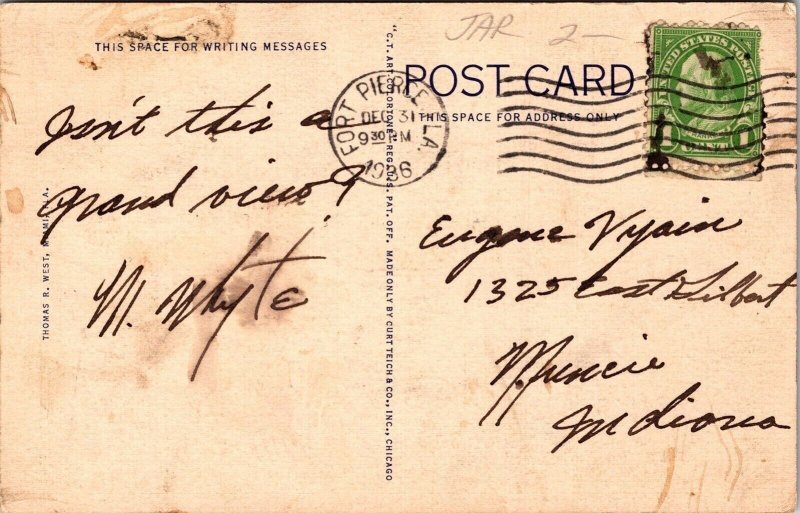 JAR 2-
THIS SPACE FOR WRITING MESSAGES
Isn't this a
grand view?
M. Whyte
THOMAS R. WEST, MIAMI, FLA.
"C.T. ART-COLORTONE" REG. U.S. PAT. OFF. MADE ONLY BY CURT TEICH & CO., INC., CHICAGO
FORT PIERCE, FLA.
DEC 31
9 30 PM
1936
POST CARD
THIS SPACE FOR ADDRESS ONLY
UNITED STATES POSTAGE
1 CENT 1
Eugene
1325 East Gilbert
Muncie
Indiana